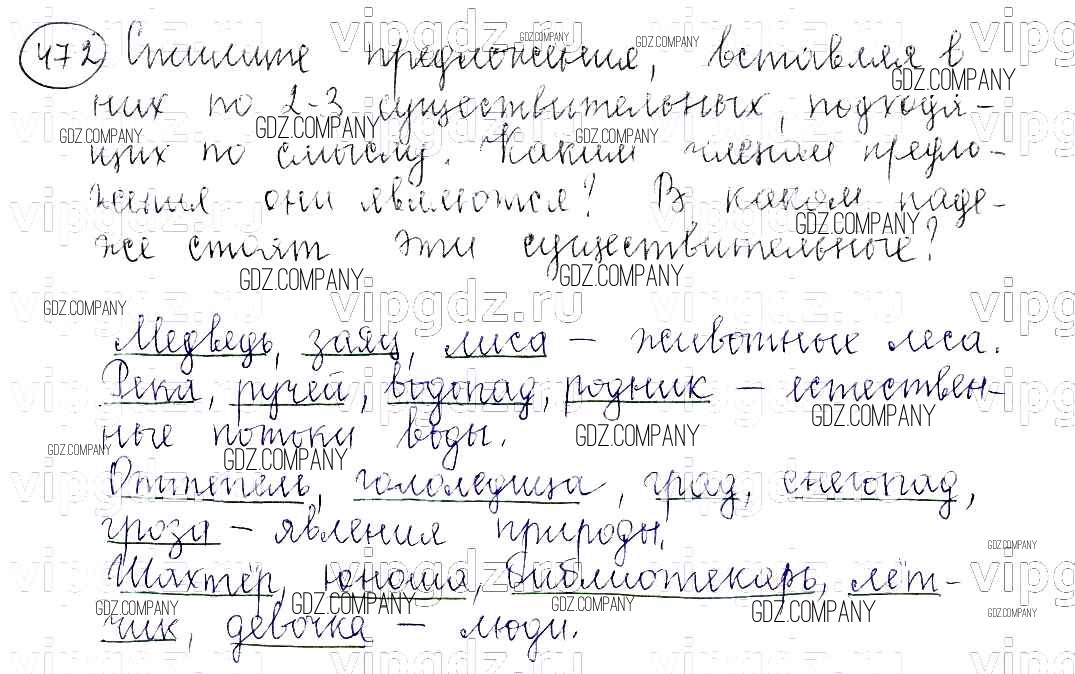 472 Спишите предложения, вставляя в
них по 2-3 существительных, подходя-
щих по смыслу. Каким членом предло-
жения они являются? В каком паде-
же стоят эти существительные?
Медведь, заяц, лиса – животные леса.
Река, ручей, водопад, родник – естествен-
ные потоки воды.
Оттепель, гололедица, град, снегопад,
гроза – явления природы.
Шахтёр, юноша, библиотекарь, лёт-
чик, девочка – люди.